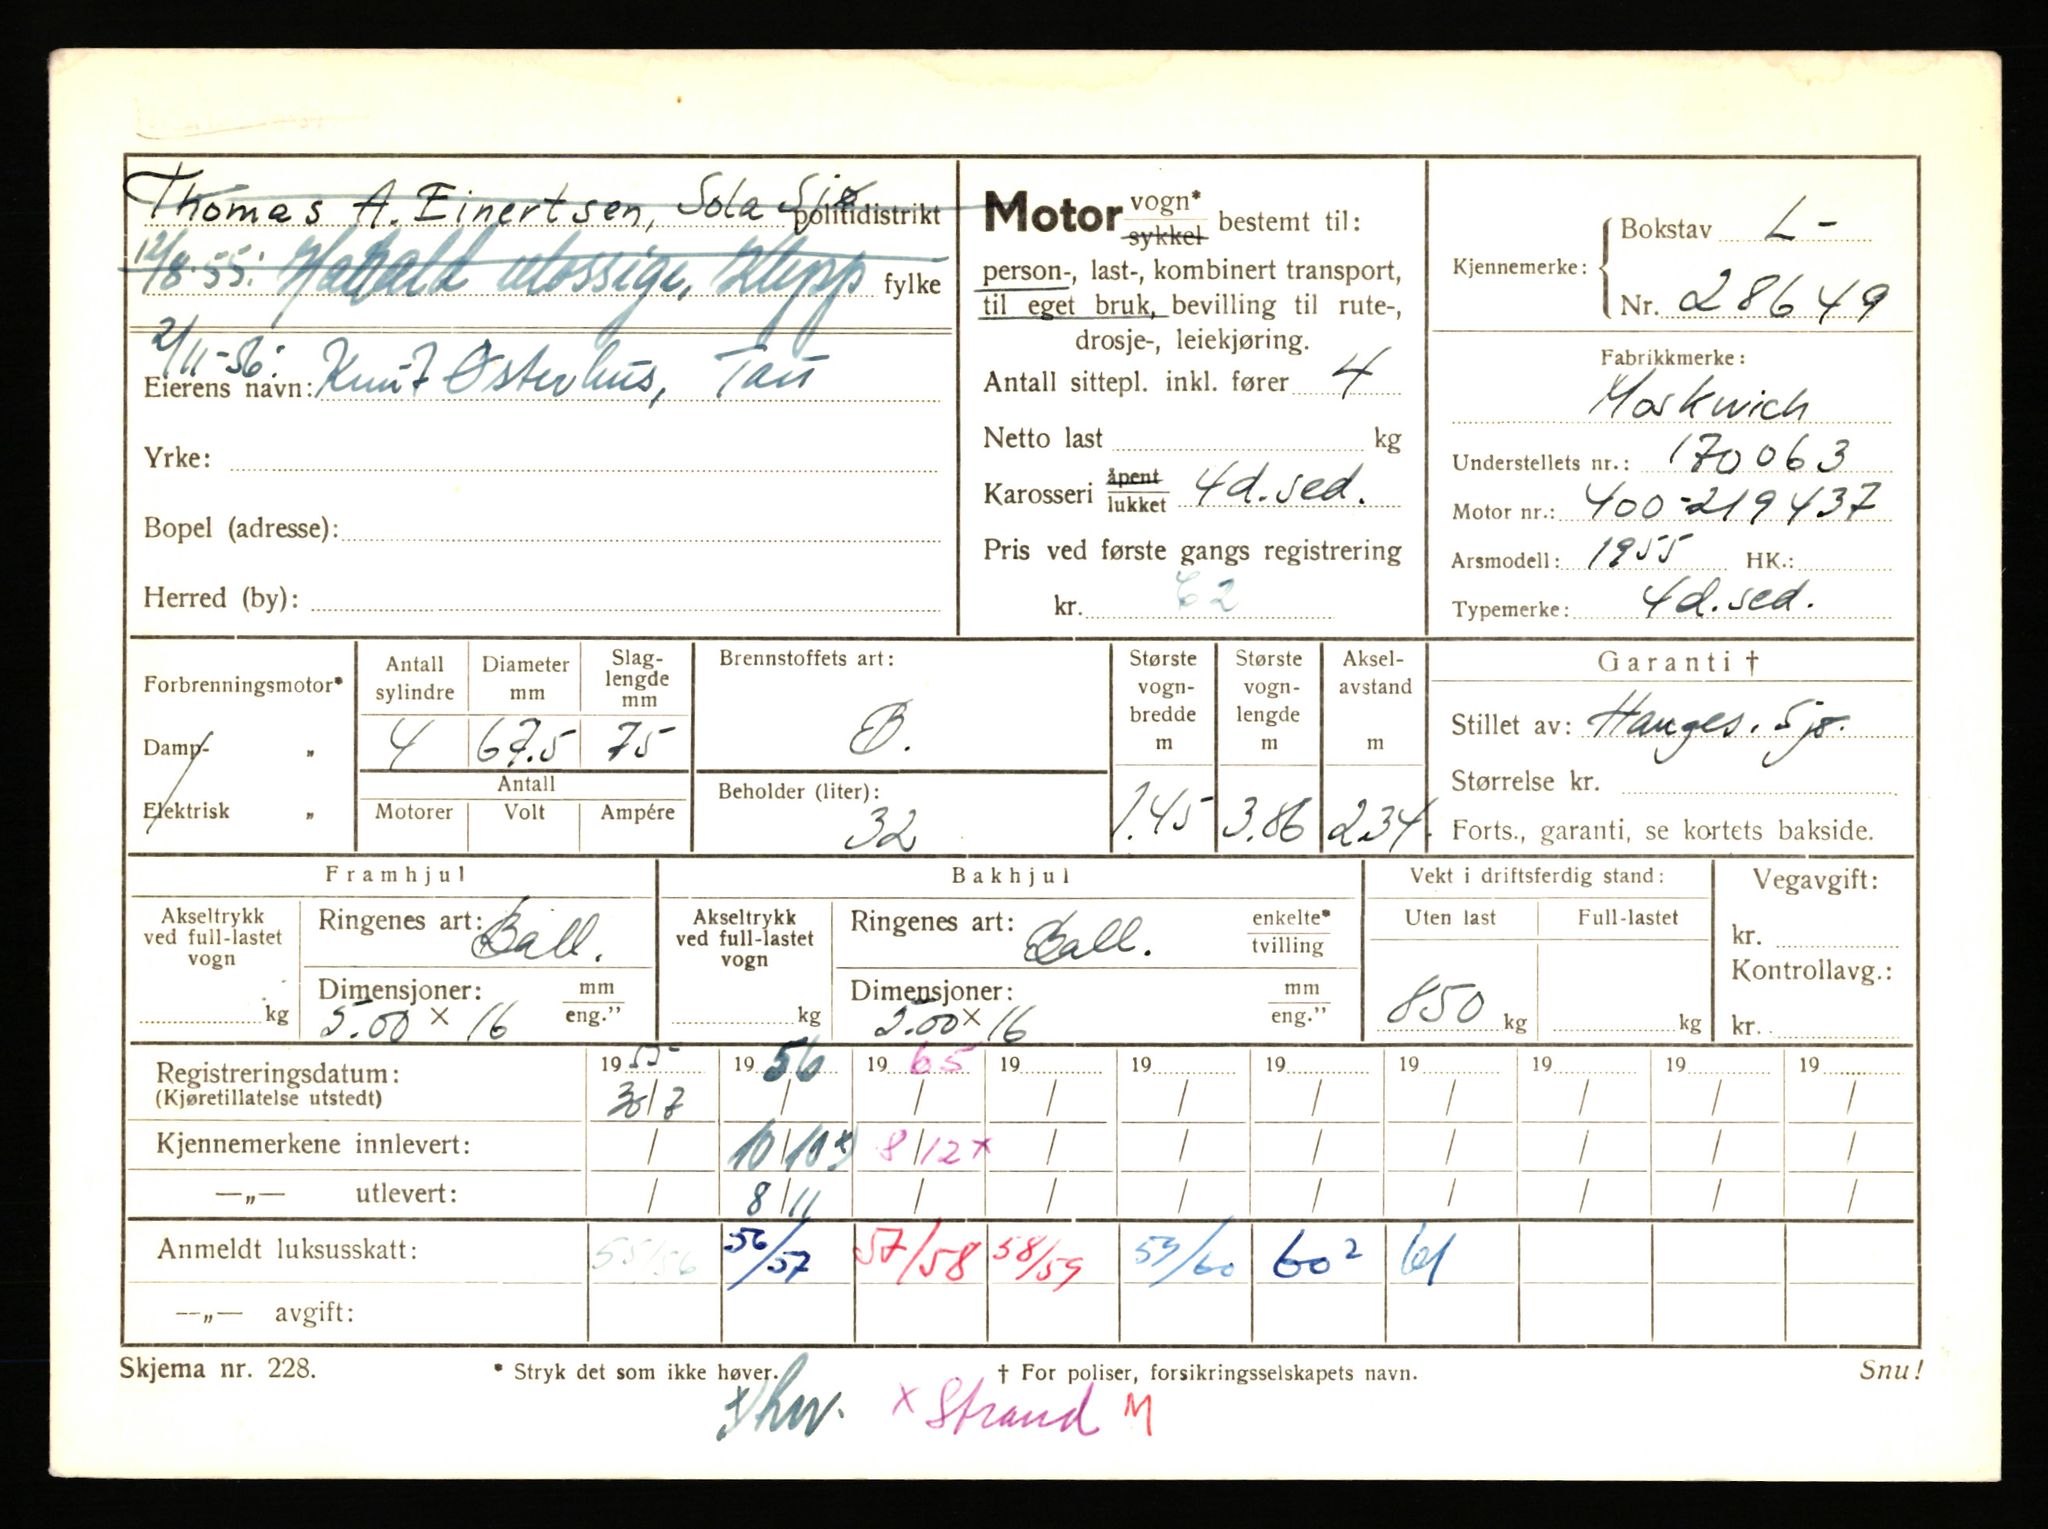 Thomas A. Einertsen, Sola Sjø politidistrikt
12/8-55: Harald fylke
2/11-56:
Eierens navn: Knut Østerhus, Tau
Yrke:
Bopel (adresse):
Herred (by):
Motor vogn* sykkel bestemt til:
person-, last-, kombinert transport,
til eget bruk, bevilling til rute-,
drosje-, leiekjøring.
Antall sittepl. inkl. fører 4
Netto last kg
Karosseri åpent lukket 4d. sed.
Pris ved første gangs registrering
kr. C2
Kjennemerke: Bokstav L-
Nr. 28649
Fabrikkmerke:
Moskwich
Understellets nr.: 170063
Motor nr.: 400-219437
Arsmodell: 1955 HK.:
Typemerke: 4d. sed.
Forbrenningsmotor*
Damp- „
Elektrisk „
Antall sylindre
4
Diameter mm
67.5
Slag-lengde mm
75
Antall
Motorer Volt Ampére
Brennstoffets art:
B.
Beholder (liter):
32
Største vogn-bredde m
1.45
Største vogn-lengde m
3.86
Aksel-avstand m
2.34.
Garanti †
Stillet av: Hauges. Sjø.
Størrelse kr.
Forts., garanti, se kortets bakside.
Framhjul
Akseltrykk ved full-lastet vogn
kg
Ringenes art: Ball.
Dimensjoner: mm eng."
5.00 x 16
Bakhjul
Akseltrykk ved full-lastet vogn
kg
Ringenes art: Ball. enkelte* tvilling
Dimensjoner: mm eng."
5.00 x 16
Vekt i driftsferdig stand:
Uten last Full-lastet
850 kg kg
Vegavgift:
kr.
Kontrollavg.:
kr.
Registreringsdatum: 1955 1956 1965 19 19 19 19 19 19 19
(Kjøretillatelse utstedt) 30/7 / / / / / / / / /
Kjennemerkene innlevert: / 10/10 x) 8/12 x / / / / / / /
—„— utlevert: / 8/11 / / / / / / / /
Anmeldt luksusskatt: 55/56 56/57 57/58 58/59 59/60 60² 61
—„— avgift:
Skjema nr. 228. * Stryk det som ikke høver. † For poliser, forsikringsselskapets navn. Snu!
x Strand M